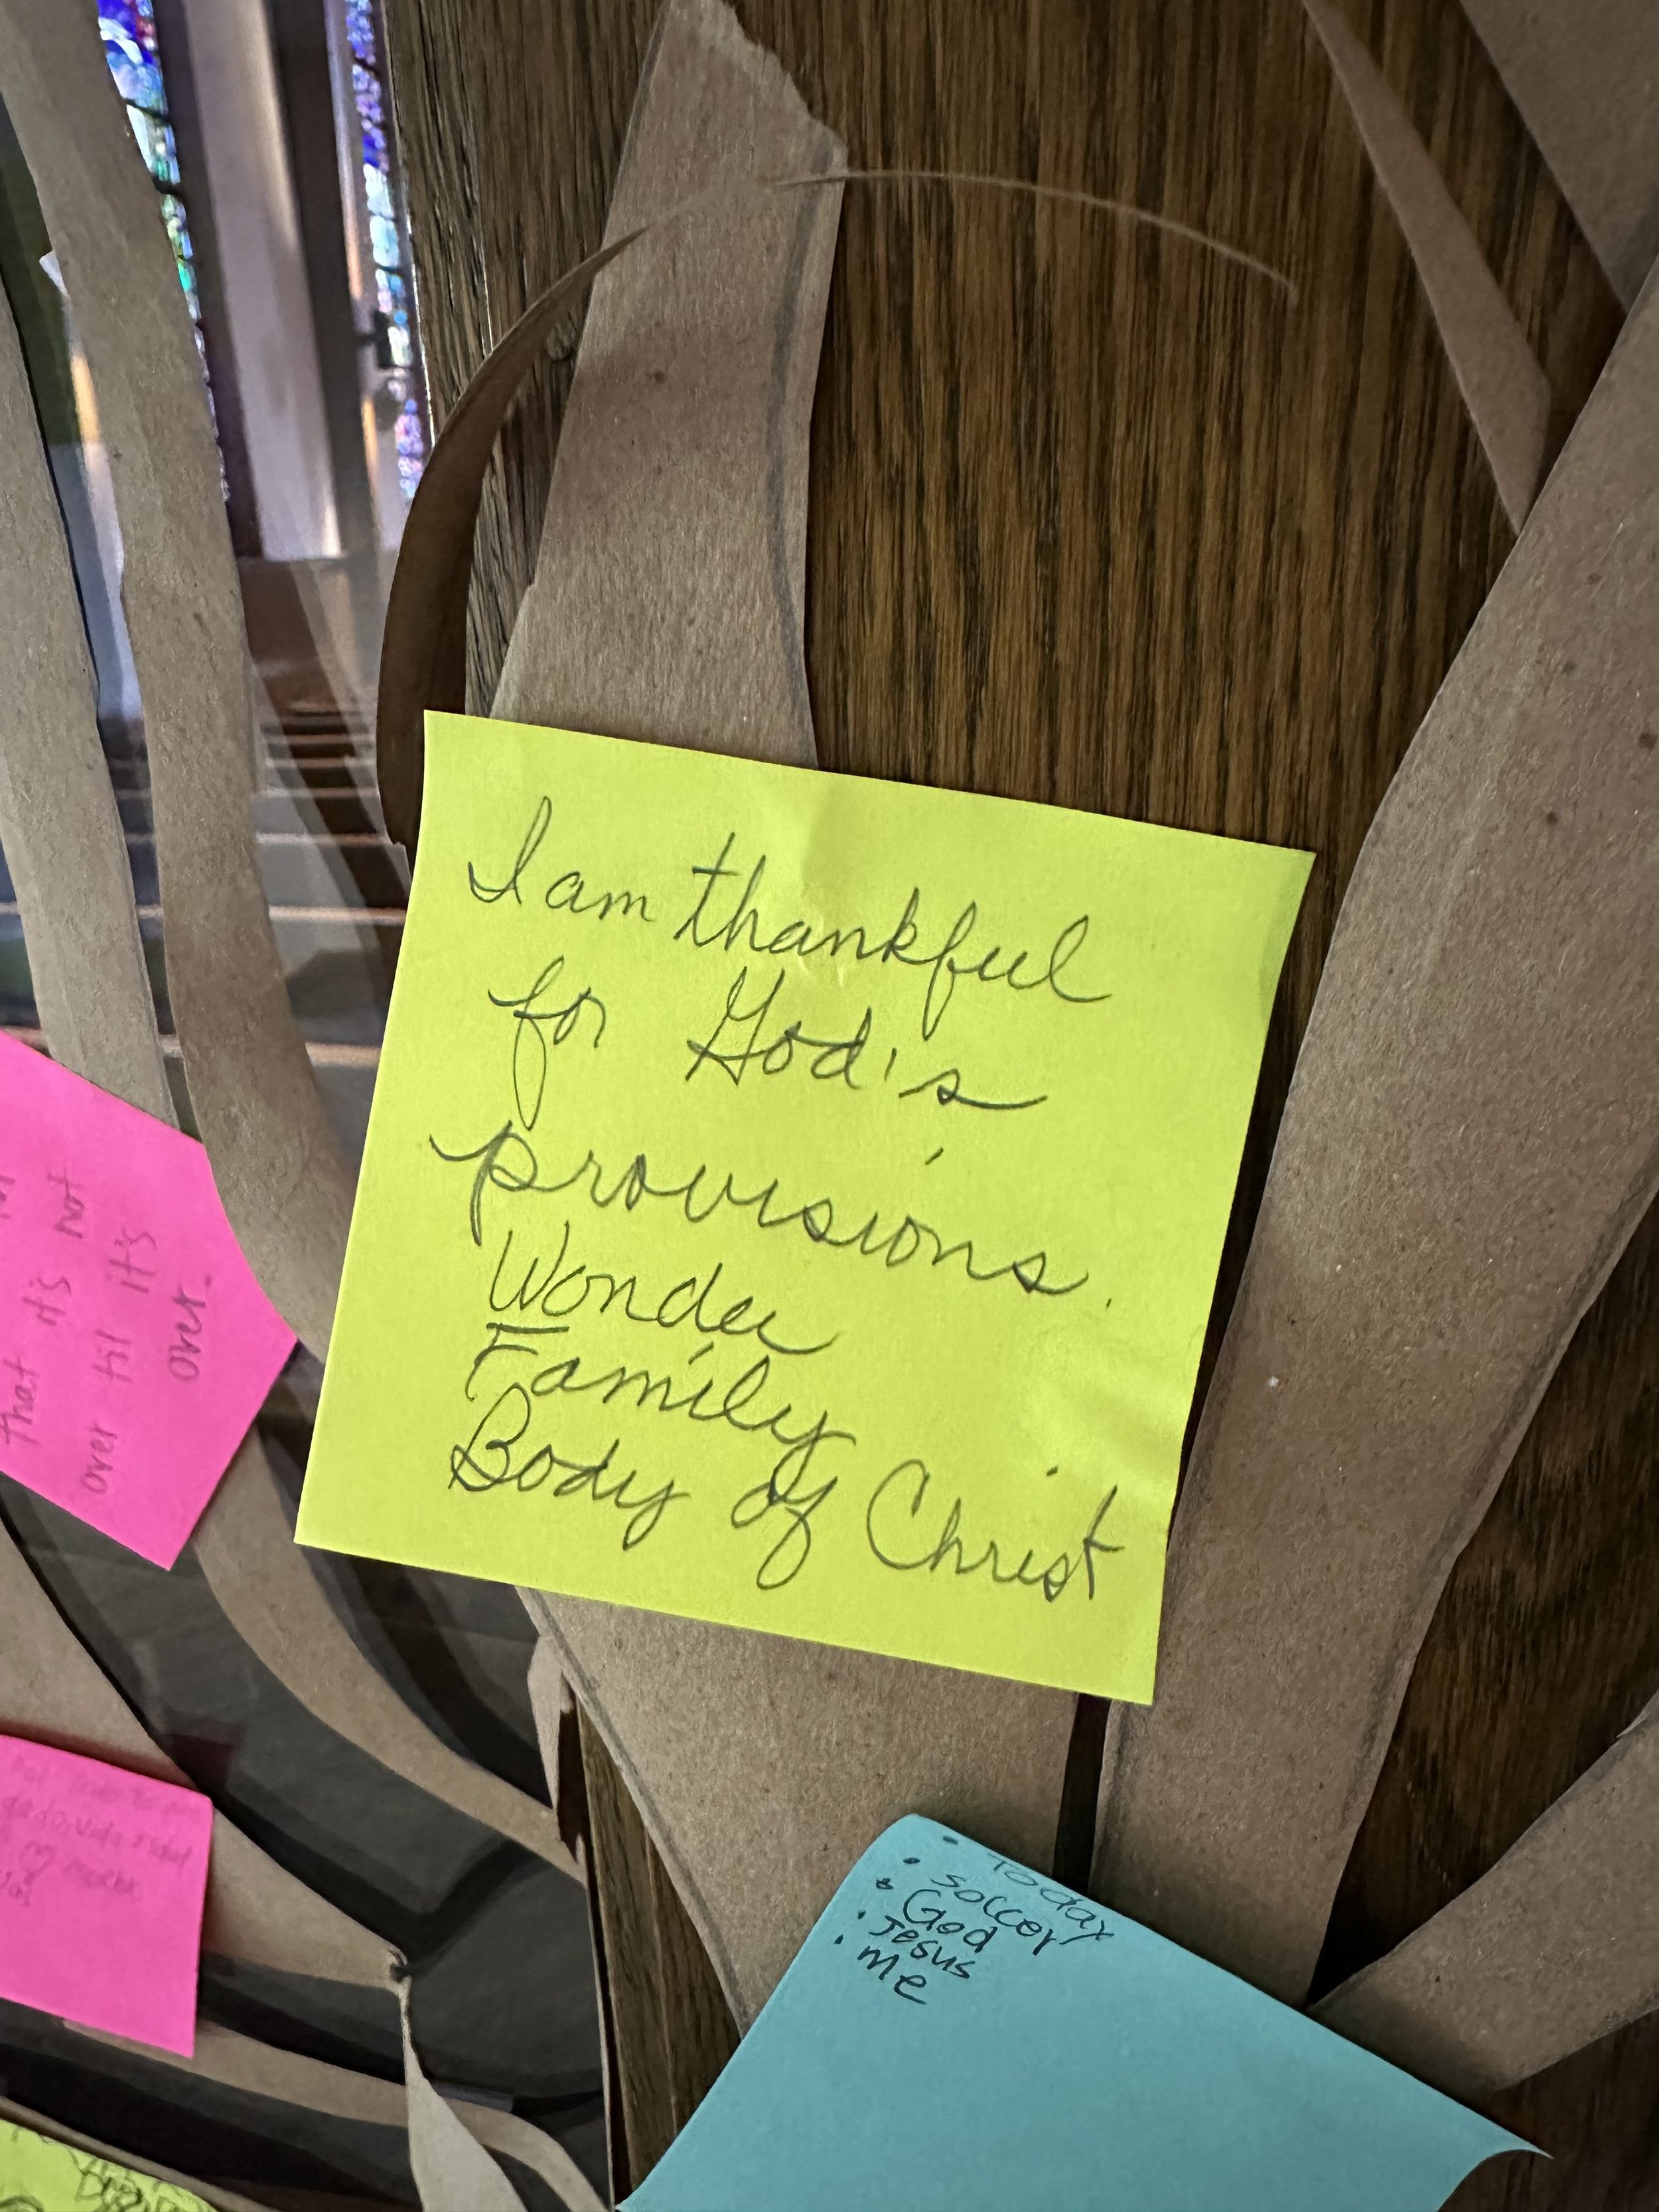 I am thankful
for God's
provisions.
Wonder
Family
Body of Christ
that it's not
over til it's
over.
• Today
• soccer
• God
• Jesus
• me